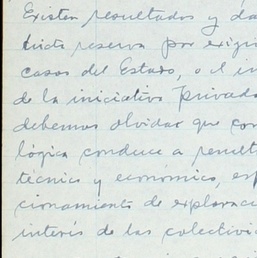 Existen resultados y da
tricta reserva por exigi
casos del Estado, o el in
de la iniciativa Privada
debemos olvidar que con
lógica conduce a result
técnico y económico, esp
cionamiento de explorac
interés de las colectivi